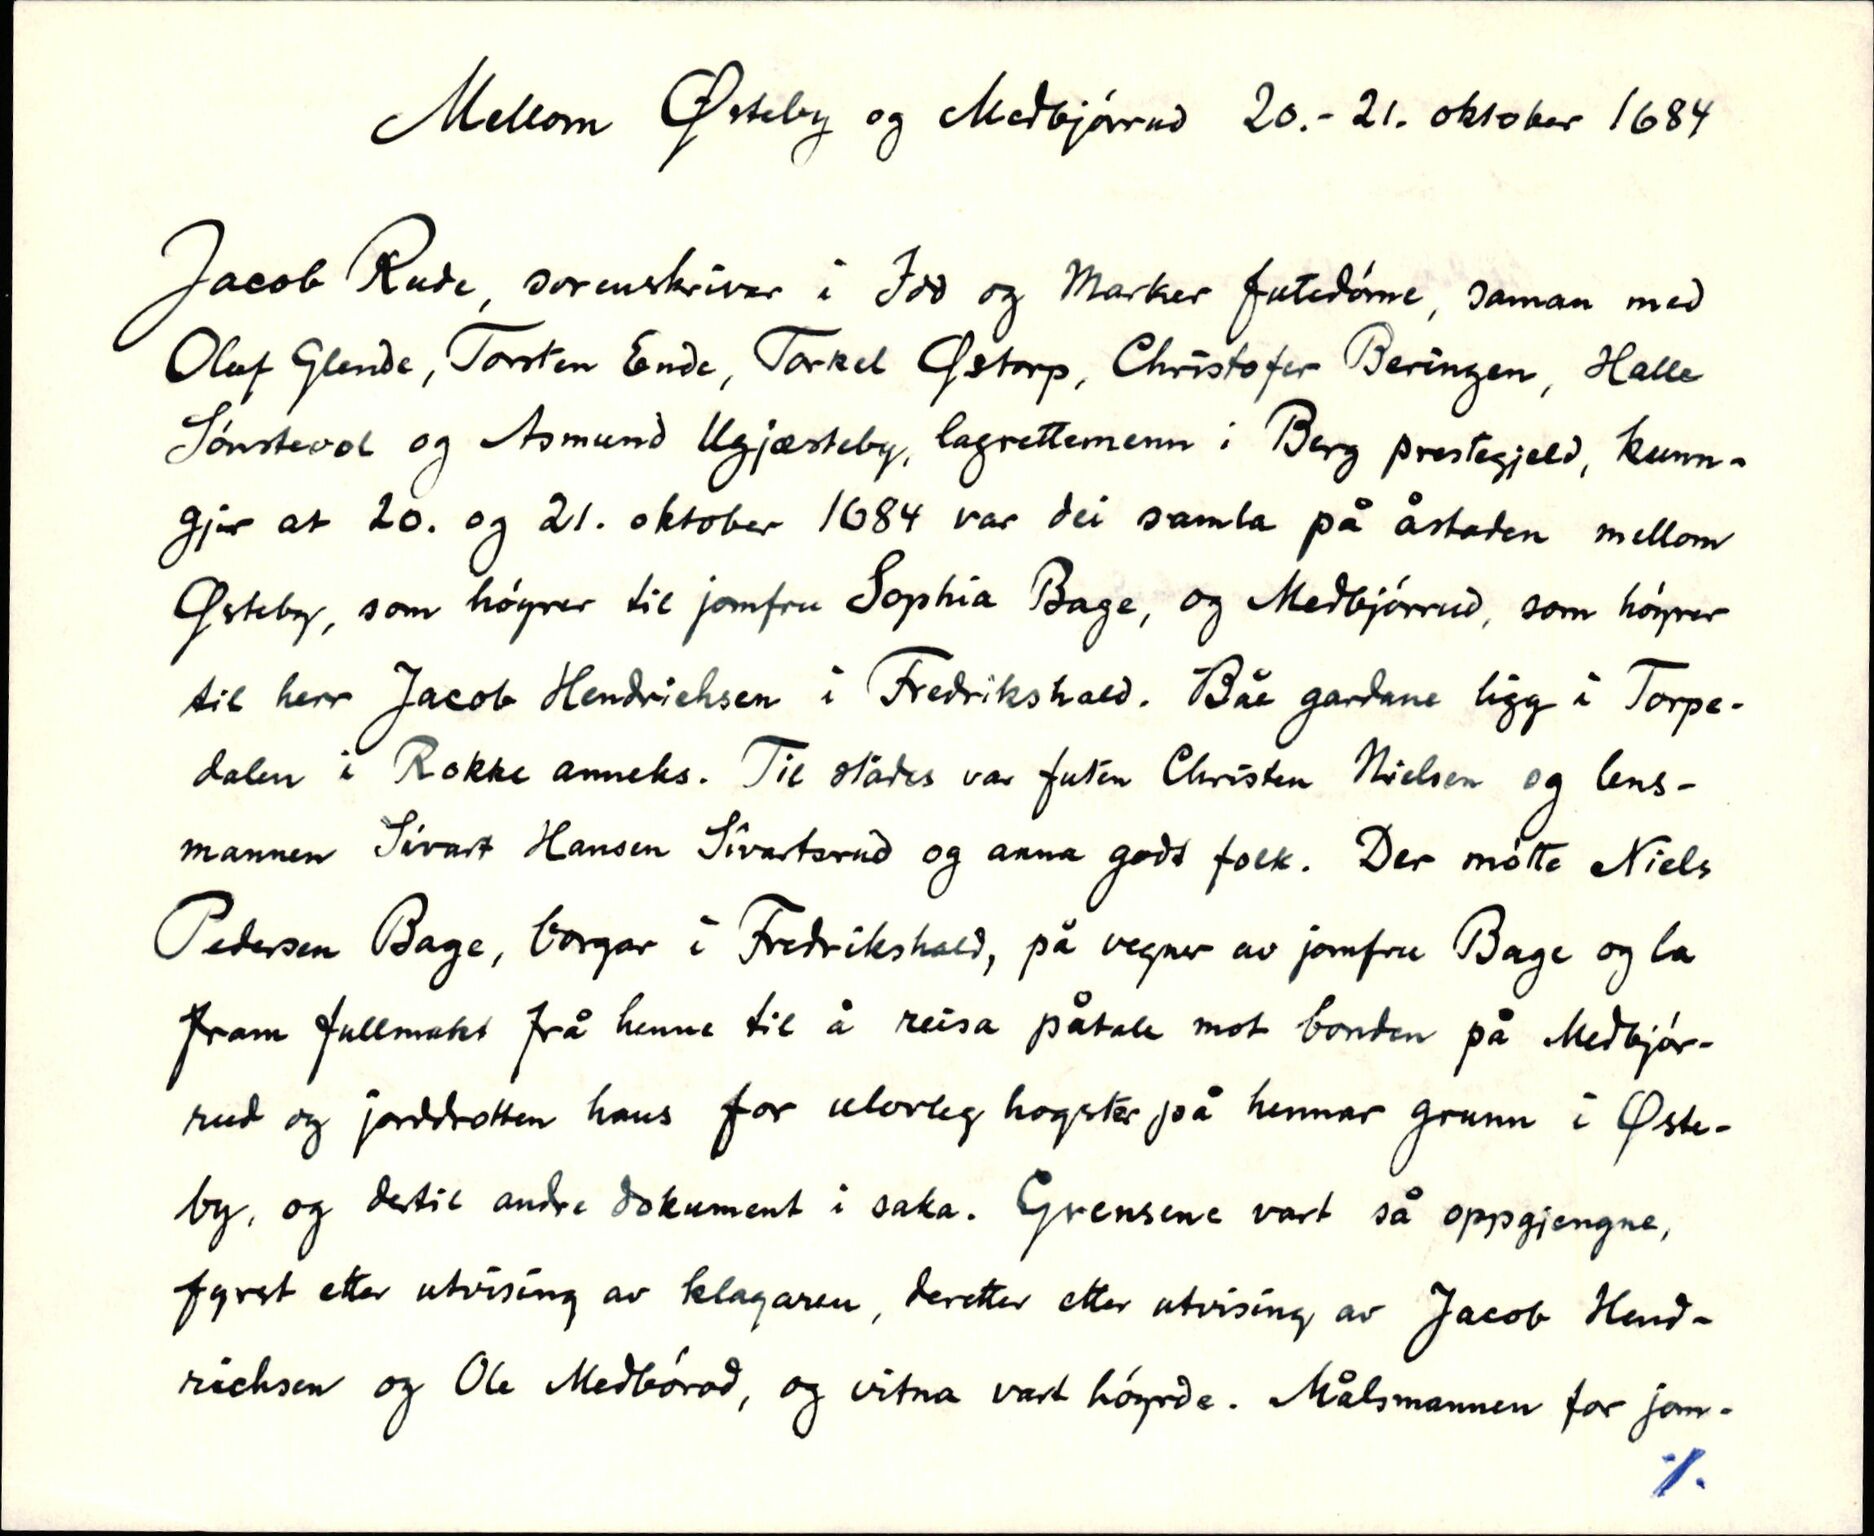 Mellom Østeby og Medbjórrud 20.-21. oktober 1684
Jacob Rude, sorenskrivar i Idd og Marker futedóme, saman med
Oluf Glende, Torsten Ende, Torkel Østorp, Christofer Beringen, Halle
Sónstevol og Asmund Ugjæsteby, lagrettemenn i Berg prestegjeld, kunn-
gjer at 20. og 21. oktober 1684 var dei samla på åstaden mellom
Østeby, som hóyrer til jomfru Sophia Bage, og Medbjórrud, som hóyrer
til herr Jacob Hendrichsen i Fredrikshald. Båe gardane ligg i Torpe-
dalen i Rokke anneks. Til stades var futen Christen Nielsen og lens-
mannen Sivart Hansen Sivartsrud og anna godt folk. Der mótte Niels
Pedersen Bage, borgar i Fredrikshald, på vegner av jomfru Bage og la
fram fullmakt frå henne til å reisa påtale mot bonden på Medbjór-
rud og jorddrotten hans for ulovleg hogster på hennar grunn i Øste-
by, og dertil andre dokument i saka. Grensene vart så oppgjengne,
fyrst etter utvising av klagaren, deretter etter utvising av Jacob Hend-
richsen og Ole Medbórod, og vitna vart hóyrde. Målsmannen for jom-
./.